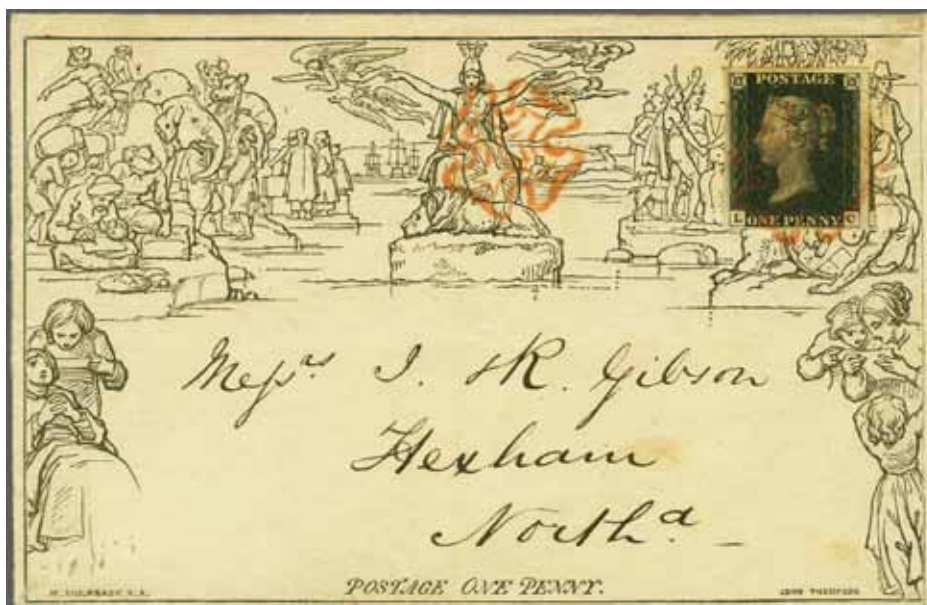 POSTAGE
ONE PENNY
Messrs I. & R. Gibson
Hexham
Northd.
POSTAGE ONE PENNY.
JOHN THOMPSON